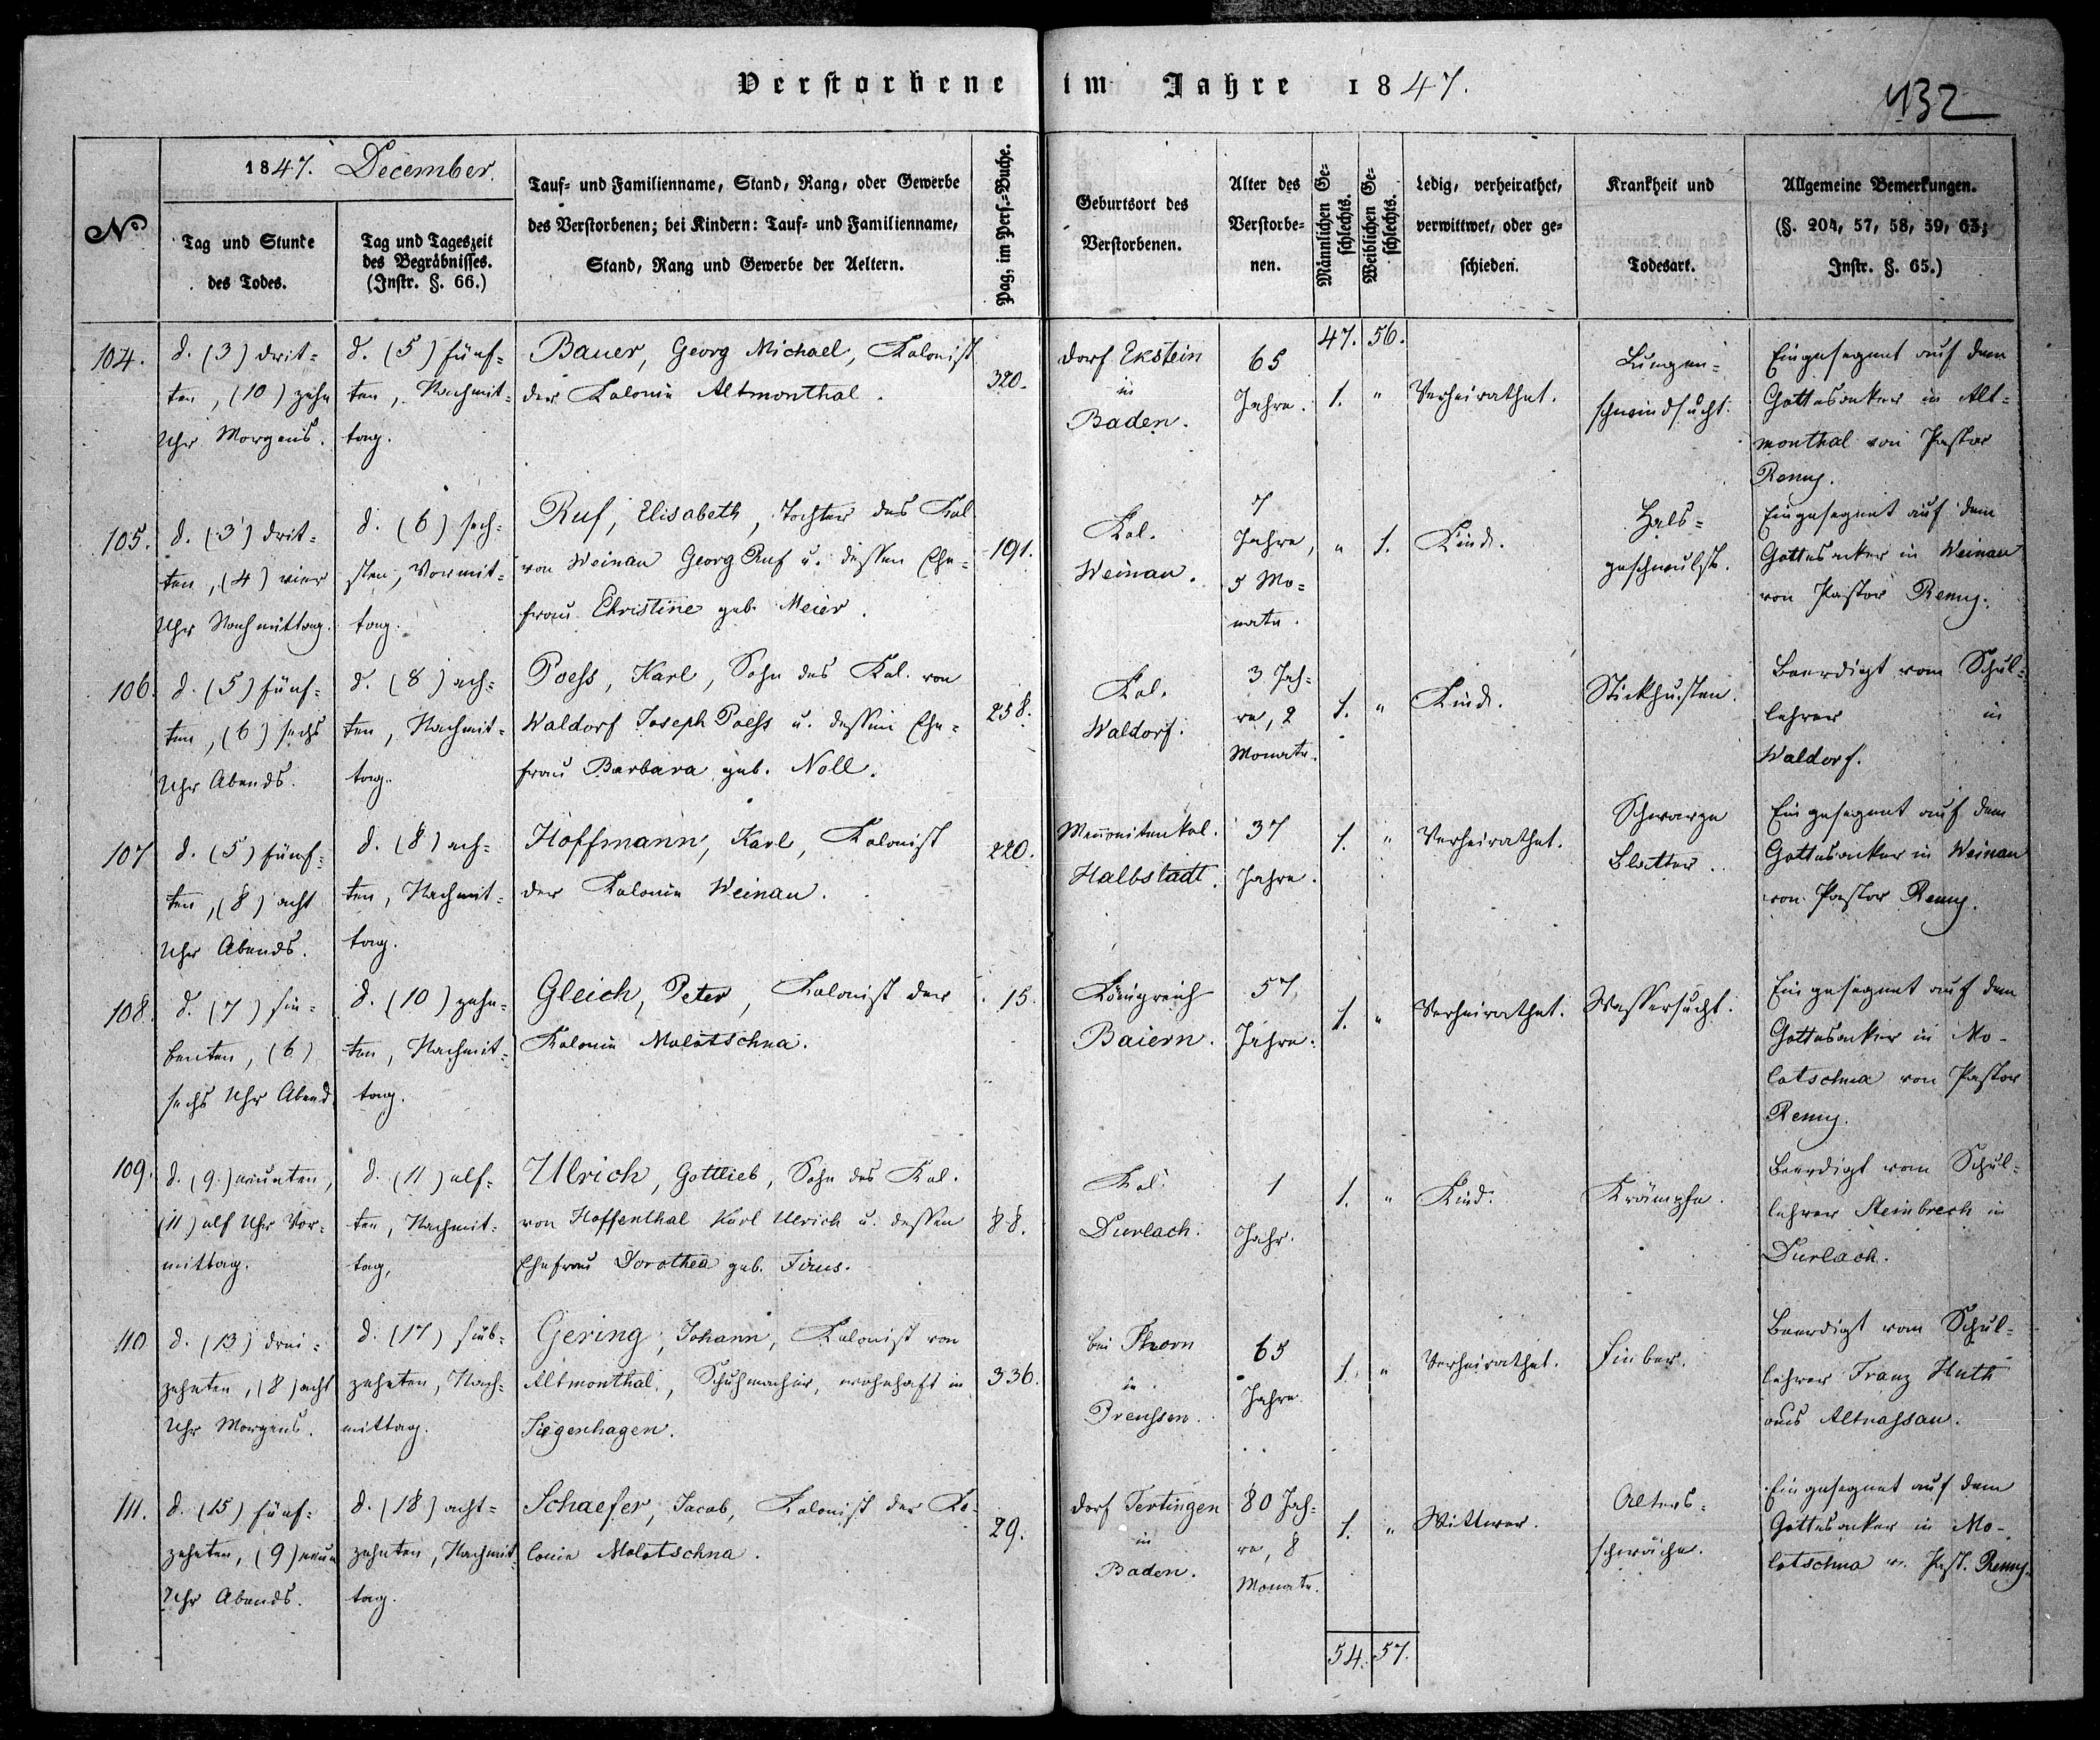 Verstorbene im Jahre 1847.
432
No
1847. December.
Tag und Stunde
des Todes.
Tag und Tageszeit
des Begräbnisses.
(Instr. §. 66.)
Tauf- und Familienname, Stand, Rang, oder Gewerbe
des Verstorbenen; bei Kindern: Tauf- und Familienname,
Stand, Rang und Gewerbe der Aeltern.
Pag. im Pers.-Buche.
Geburtsort des
Verstorbenen.
Alter des
Verstorbe-
nen.
Männlichen Ge-
schlechts.
Weiblichen Ge-
schlechts.
Ledig, verheirathet,
verwittwet, oder ge-
schieden.
Krankheit und
Todesart.
Allgemeine Bemerkungen.
(§. 204, 57, 58, 59, 63;
Instr. §. 65.)
47. 56.
104.
d. (3) drit-
ten, (10) zehn
Uhr Morgens.
d. (5) fünf-
ten, Nachmit-
tag.
Bauer, Georg Michael, Kolonist
der Kolonie Altmonthal.
320.
Dorf Ekstein
in
Baden.
65
Jahre.
1. "
Verheirathet.
Lungen-
schwindsucht.
Eingesegnet auf dem
Gottesacker in Alt-
monthal von Pastor
Remy.
105.
d. (3) drit-
ten, (4) vier
Uhr Nachmittag.
d. (6) sech-
sten, Vormit-
tag.
Ruf, Elisabeth, Tochter des Kol.
von Weinau Georg Ruf u. dessen Ehe-
frau Christine geb. Meier.
191.
Kol.
Weinau.
7
Jahre,
5 Mo-
nate.
" 1.
Kind.
Hals-
geschwulst.
Eingesegnet auf dem
Gottesacker in Weinau
von Pastor Remy.
106.
d. (5) fünf-
ten, (6) sechs
Uhr Abends.
d. (8) ach-
ten, Nachmit-
tag.
Poehs, Karl, Sohn des Kol. von
Waldorf Joseph Poehs u. dessen Ehe-
frau Barbara geb. Noll.
258.
Kol.
Waldorf.
3 Jah-
re, 2
Monate.
1. "
Kind.
Stickhusten.
Beerdigt vom Schul-
lehrer in
Waldorf.
107
d. (5) fünf-
ten, (8) acht
Uhr Abends.
d. (8) ach-
ten, Nachmit-
tag.
Hoffmann, Karl, Kolonist
der Kolonie Weinau.
220.
Mennonitenkol.
Halbstadt.
37
Jahre.
1. "
Verheirathet.
Schwarze
Blatter.
Eingesegnet auf dem
Gottesacker in Weinau
von Pastor Remy.
108.
d. (7) sie-
benten, (6)
sechs Uhr Abend
d. (10) zehn-
ten, Nachmit-
tag.
Gleich, Peter, Kolonist der
Kolonie Molotschna.
15.
Königreich
Baiern.
57
Jahre.
1. "
Verheirathet.
Wassersucht.
Eingesegnet auf dem
Gottesacker in Mo-
lotschna von Pastor
Remy.
109.
d. (9.) neunten,
(11) elf Uhr Vor-
mittag.
d. (11) elf-
ten, Nachmit-
tag,
Ulrich, Gottlieb, Sohn des Kol.
von Hoffenthal Karl Ulrich u. dessen
Ehefrau Dorothea geb. Firus.
88.
Kol.
Durlach.
1
Jahr.
1. "
Kind.
Krämpfe.
Beerdigt vom Schul-
lehrer Steinbrech in
Durlach.
110
d. (13) drei-
zehnten, (8) acht
Uhr Morgens.
d. (17) sieb-
zehnten, Nach-
mittag.
Gering, Johann, Kolonist von
Altmonthal, Schuhmacher, wohnhaft in
Tiegenhagen.
336.
bei Thorn
in
Preussen.
65
Jahre.
1. "
Verheirathet.
Fieber.
Beerdigt vom Schul-
lehrer Franz Huth
aus Altnassau.
111.
d. (15) fünf-
zehnten, (9) neun
Uhr Abends.
d. (18) acht-
zehnten, Nachmit-
tag.
Schaefer, Jacob, Kolonist der Ko-
lonie Molotschna.
29.
Dorf Tertingen
in
Baden.
80 Jah-
re, 8
Monate.
1. "
Wittwer.
Alters-
schwäche.
Eingesegnet auf dem
Gottesacker in Mo-
lotschna v. Past. Remy.
54. 57.